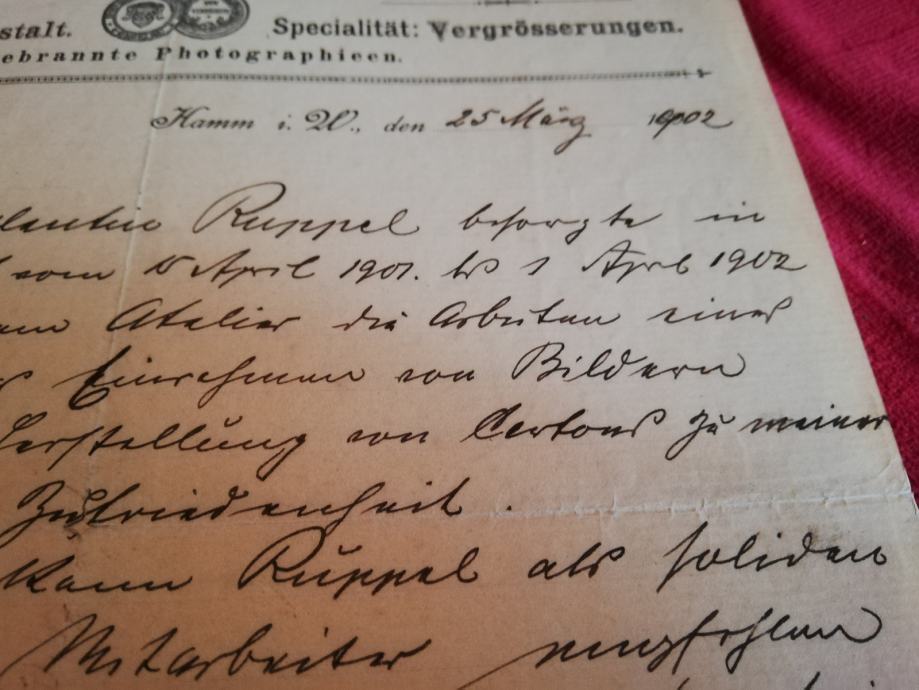 stalt. Specialität: Vergrösserungen.
ebrannte Photographieen.
Hamm i. W., den 25 März 1902
Ruppel besorgte in
vom 15 April 1901. bis 1 April 1902
Atelier die Arbeiten eines
Einrahmen von Bildern
Herstellung von Cartons zu meiner
Zufriedenheit.
kann Ruppel als soliden
Mitarbeiter empfehlen